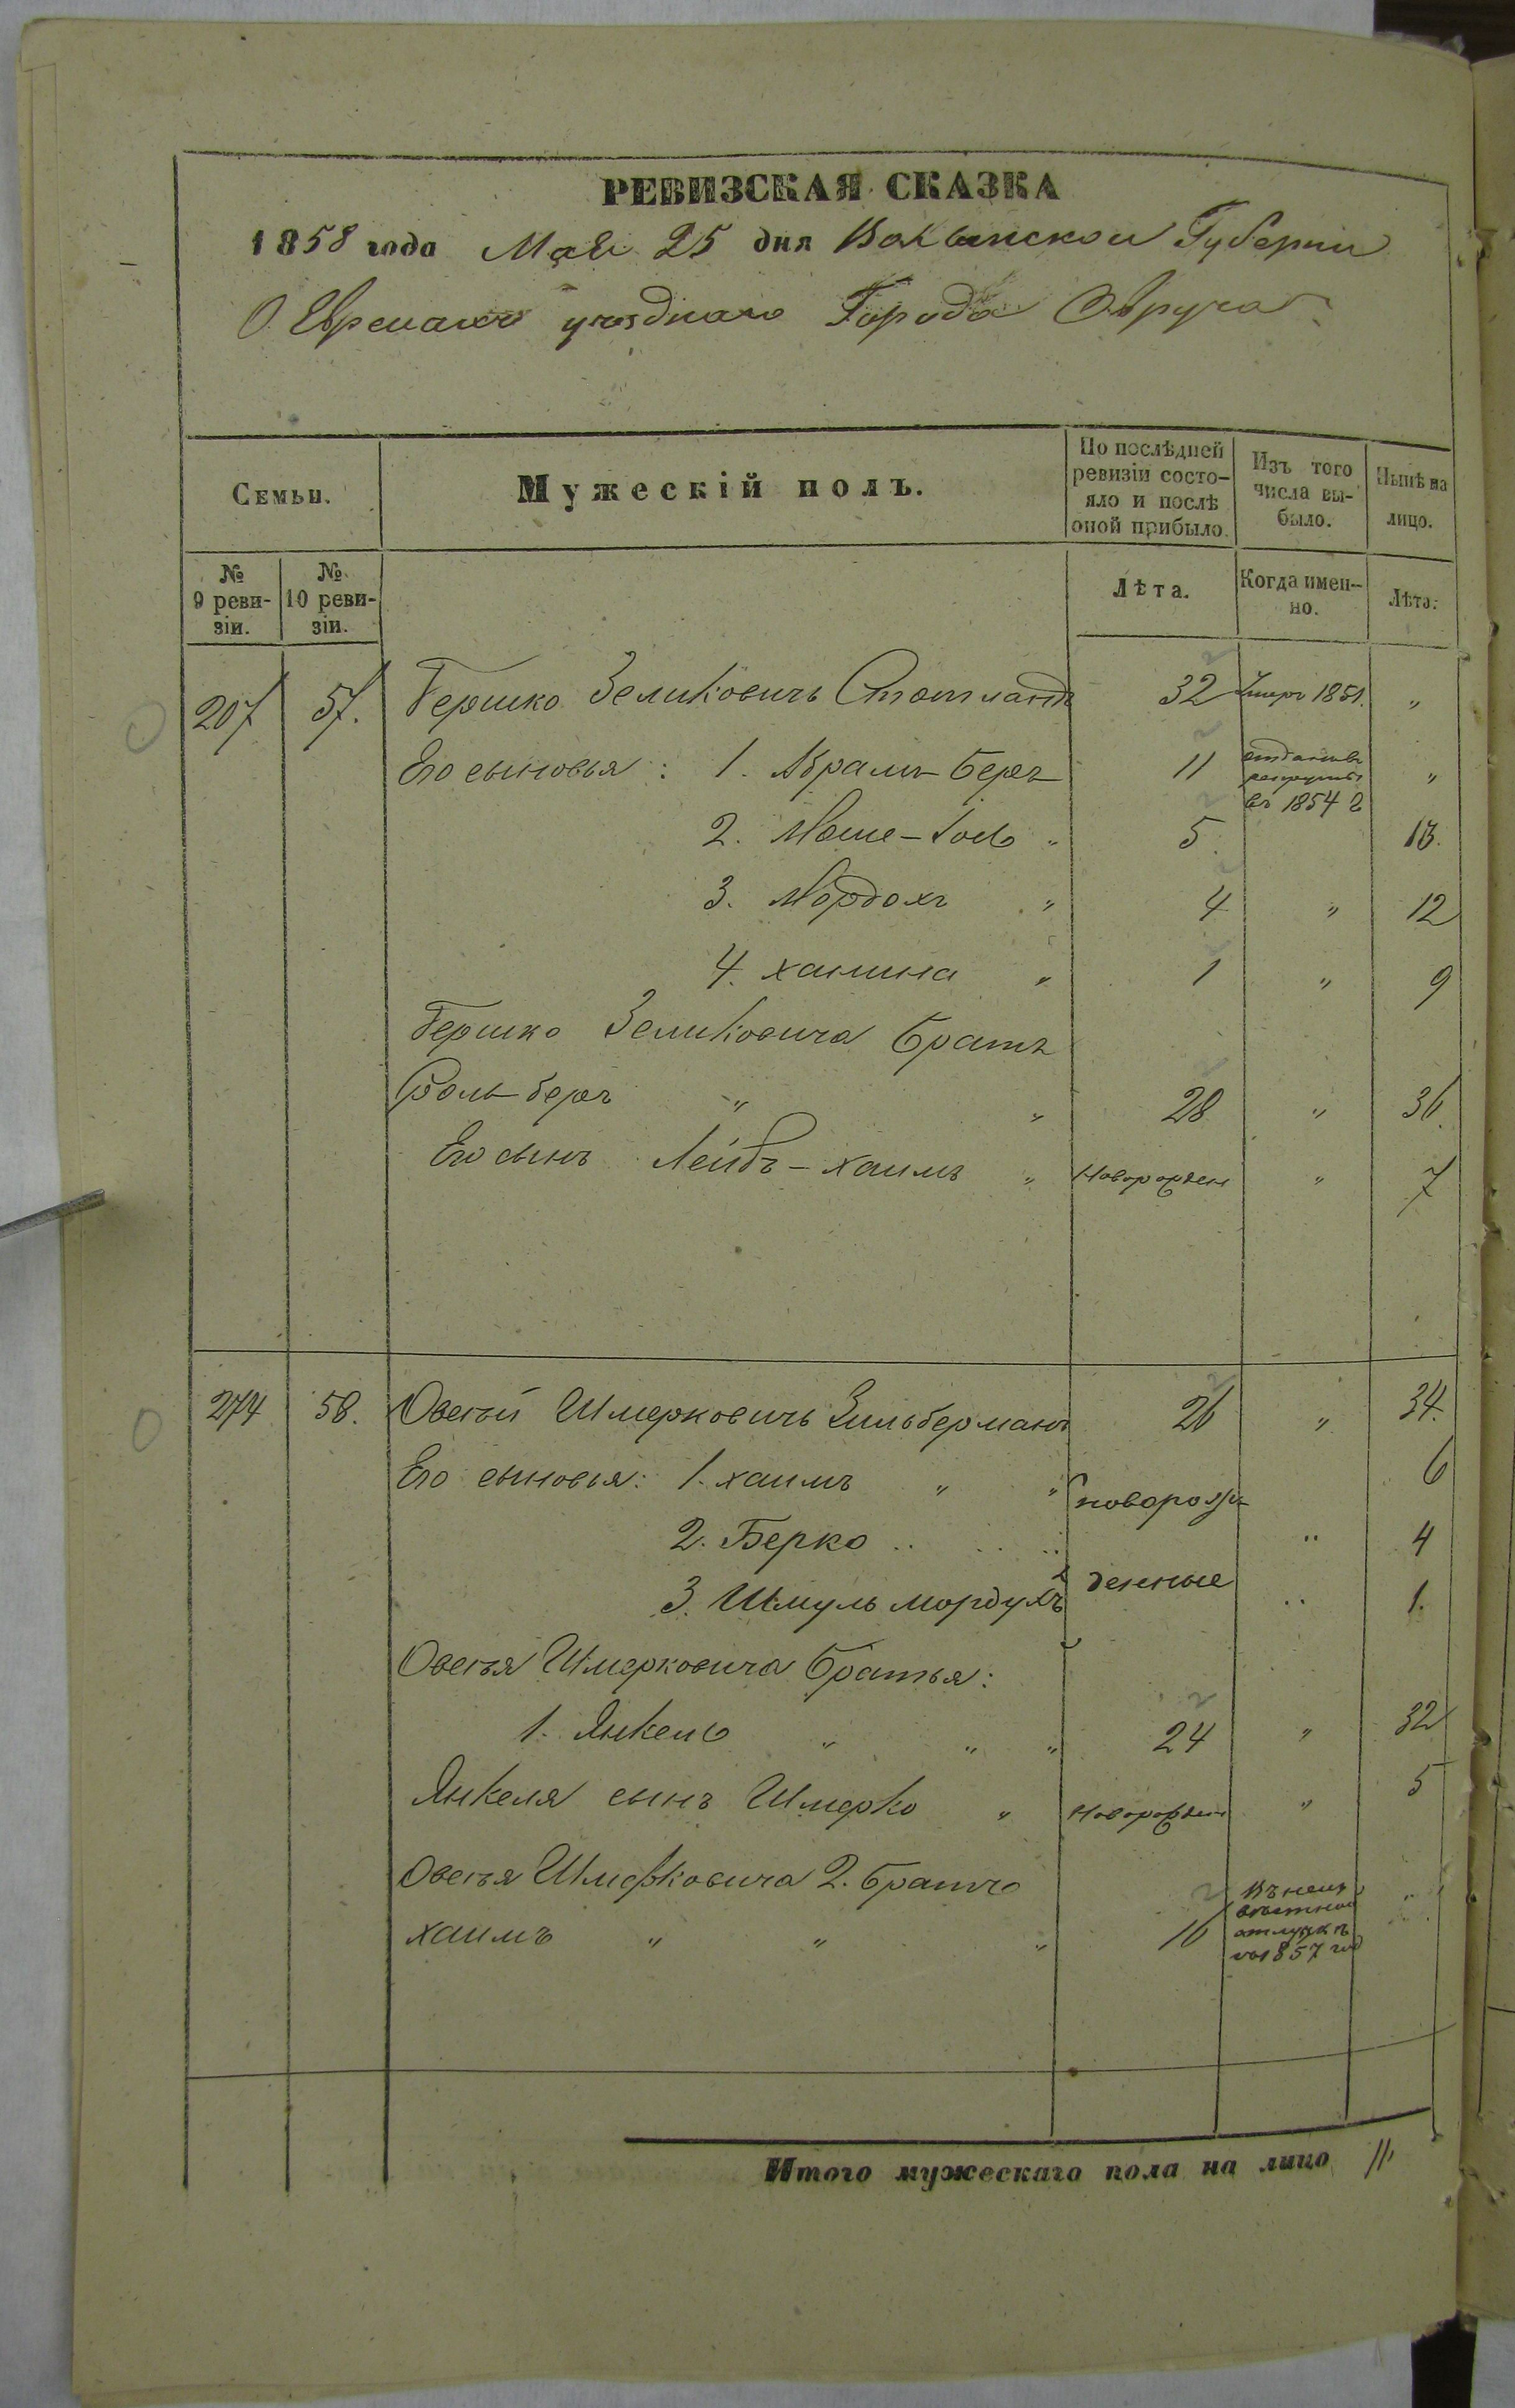 РЕВИЗСКАЯ СКАЗКА
1858 года Мая 25 дня Волынской Губернии
О Евреяхъ уѣзднаго Города Овруча
Семьи.
Мужескій полъ.
По послѣдней ревизіи состо-
яло и послѣ оной прибыло.
Изъ того числа вы-
было.
Нынѣ на лицо.
№ 9 реви-
зіи.
№ 10 реви-
зіи.
Лѣта.
Когда имен-
но.
Лѣта.
207 57. Гершко Зеликовичъ 32 Умеръ 1851. „
Его сыновья: 1. Абрамъ Беръ 11 отданъ въ рекруты въ 1854 г „
2. Моше-Іось „ 5. 13.
3. Мордохъ „ 4 „ 12
4. ханина „ 1 „ 9
Гершко Зеликовича братъ
беръ „ „ 28 „ 36.
Его сынъ Лейбъ-хаимъ „ Новорожден „ 7
274 58. Овсей Шмерковичъ Зильберманъ 26 „ 34.
Его сыновья: 1. хаимъ „ „ новорож- 6
2. Берко „ „ „ „ 4
3. Шмуль мордухъ денные „ 1.
Овсея Шмерковича братья:
1. Янкель „ „ „ 24 „ 32
Янкеля сынъ Шмерко „ Новорожден „ 5
Овсея Шмерковича 2. братъ
хаимъ „ „ „ 16 Въ неиз
вѣстной
отлучкѣ
съ 1857 год „
Итого мужескаго пола на лицо 11